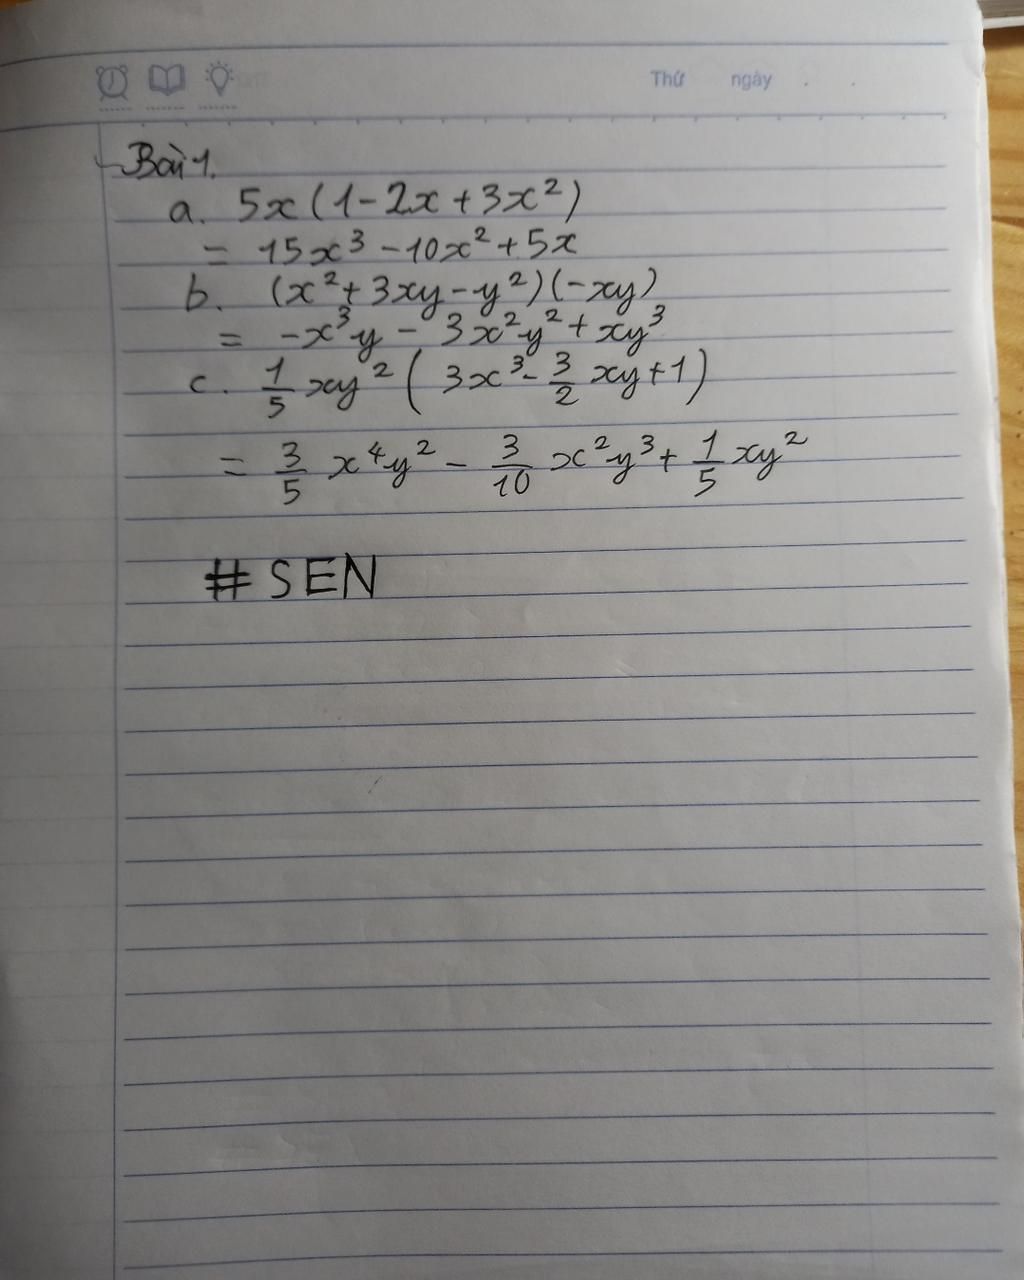 Thứ ngày . .
Bài 1.
a. 5x(1-2x+3x²)
= 15x³ - 10x² + 5x
b. (x²+3xy-y²)(-xy)
= -x³y - 3x²y² + xy³
c. 1/5 xy² (3x³ - 3/2 xy + 1)
= 3/5 x⁴y² - 3/10 x²y³ + 1/5 xy²
# SEN